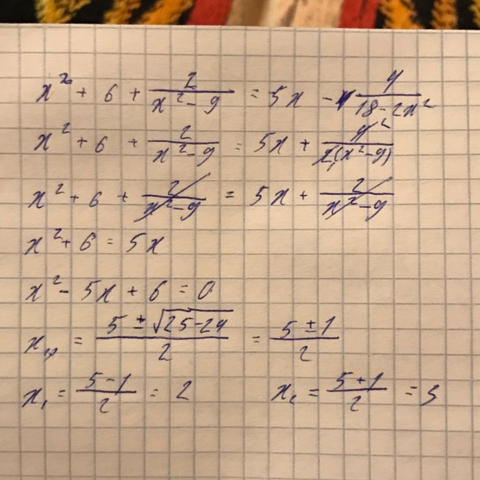 x² + 6 + 2/(x² - 9) = 5x - 4/(18 - 2x²)
x² + 6 + 2/(x² - 9) = 5x + 4²/(2₁(x² - 9))
x² + 6 + 2/(x² - 9) = 5x + 2/(x² - 9)
x² + 6 = 5x
x² - 5x + 6 = 0
x₁,₂ = (5 ± √(25 - 24))/2 = (5 ± 1)/2
x₁ = (5 - 1)/2 = 2 x₂ = (5 + 1)/2 = 3